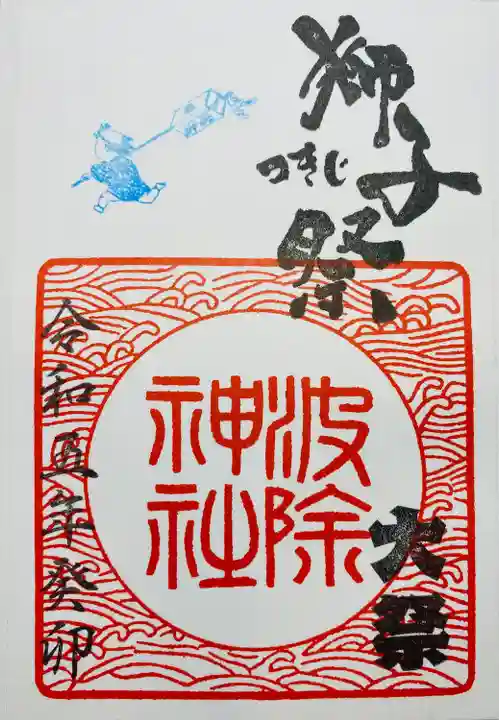 獅子祭
つきじ
波除
神社
大祭
令和五年癸卯